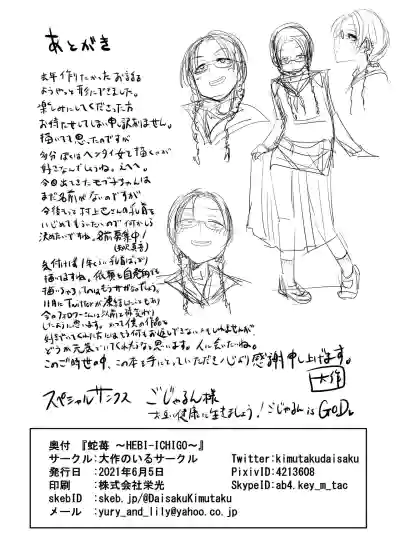 あとがき
去年作りたかったお話を
ようやっと形にできました。
楽しみにしてくださった方
お待たせしてしまい申し訳ありません。
描いてて思ったのですが
多分ぼくはヘンタイ女を描くのが
好きなんでしょうね。えへへ。
今回出てきたモブ子ちゃんは
まだ名前がないのですが
今後も
村上さんの乳首を
いじめてもらいたいので何かしら
決めたいですね。名前募集中!
気付けば1年くらい乳首ばかり
描いてますね。
11月にTwitterが凍結したこともあり
今のフォロワーさんは以前と
したように思います。
どうか元気でいてくれたらなと思います。人に会いたいね。
このご時世の中、この本を手にとっていただき心より感謝申し上げます。
大作
スペシャルサンクス ごじゃるん様
健康に生きましょう!ごじゃるん is GOD。
奥付 『蛇苺 〜HEBI-ICHIGO〜』
サークル:大作のいるサークル Twitter:kimutakudaisaku
発行日 :2021年6月5日 PixivID:4213608
印刷 :株式会社栄光 SkypeID:ab4.key_m_tac
skebID :skeb.jp/@DaisakuKimutaku
メール :yury_and_lily@yahoo.co.jp